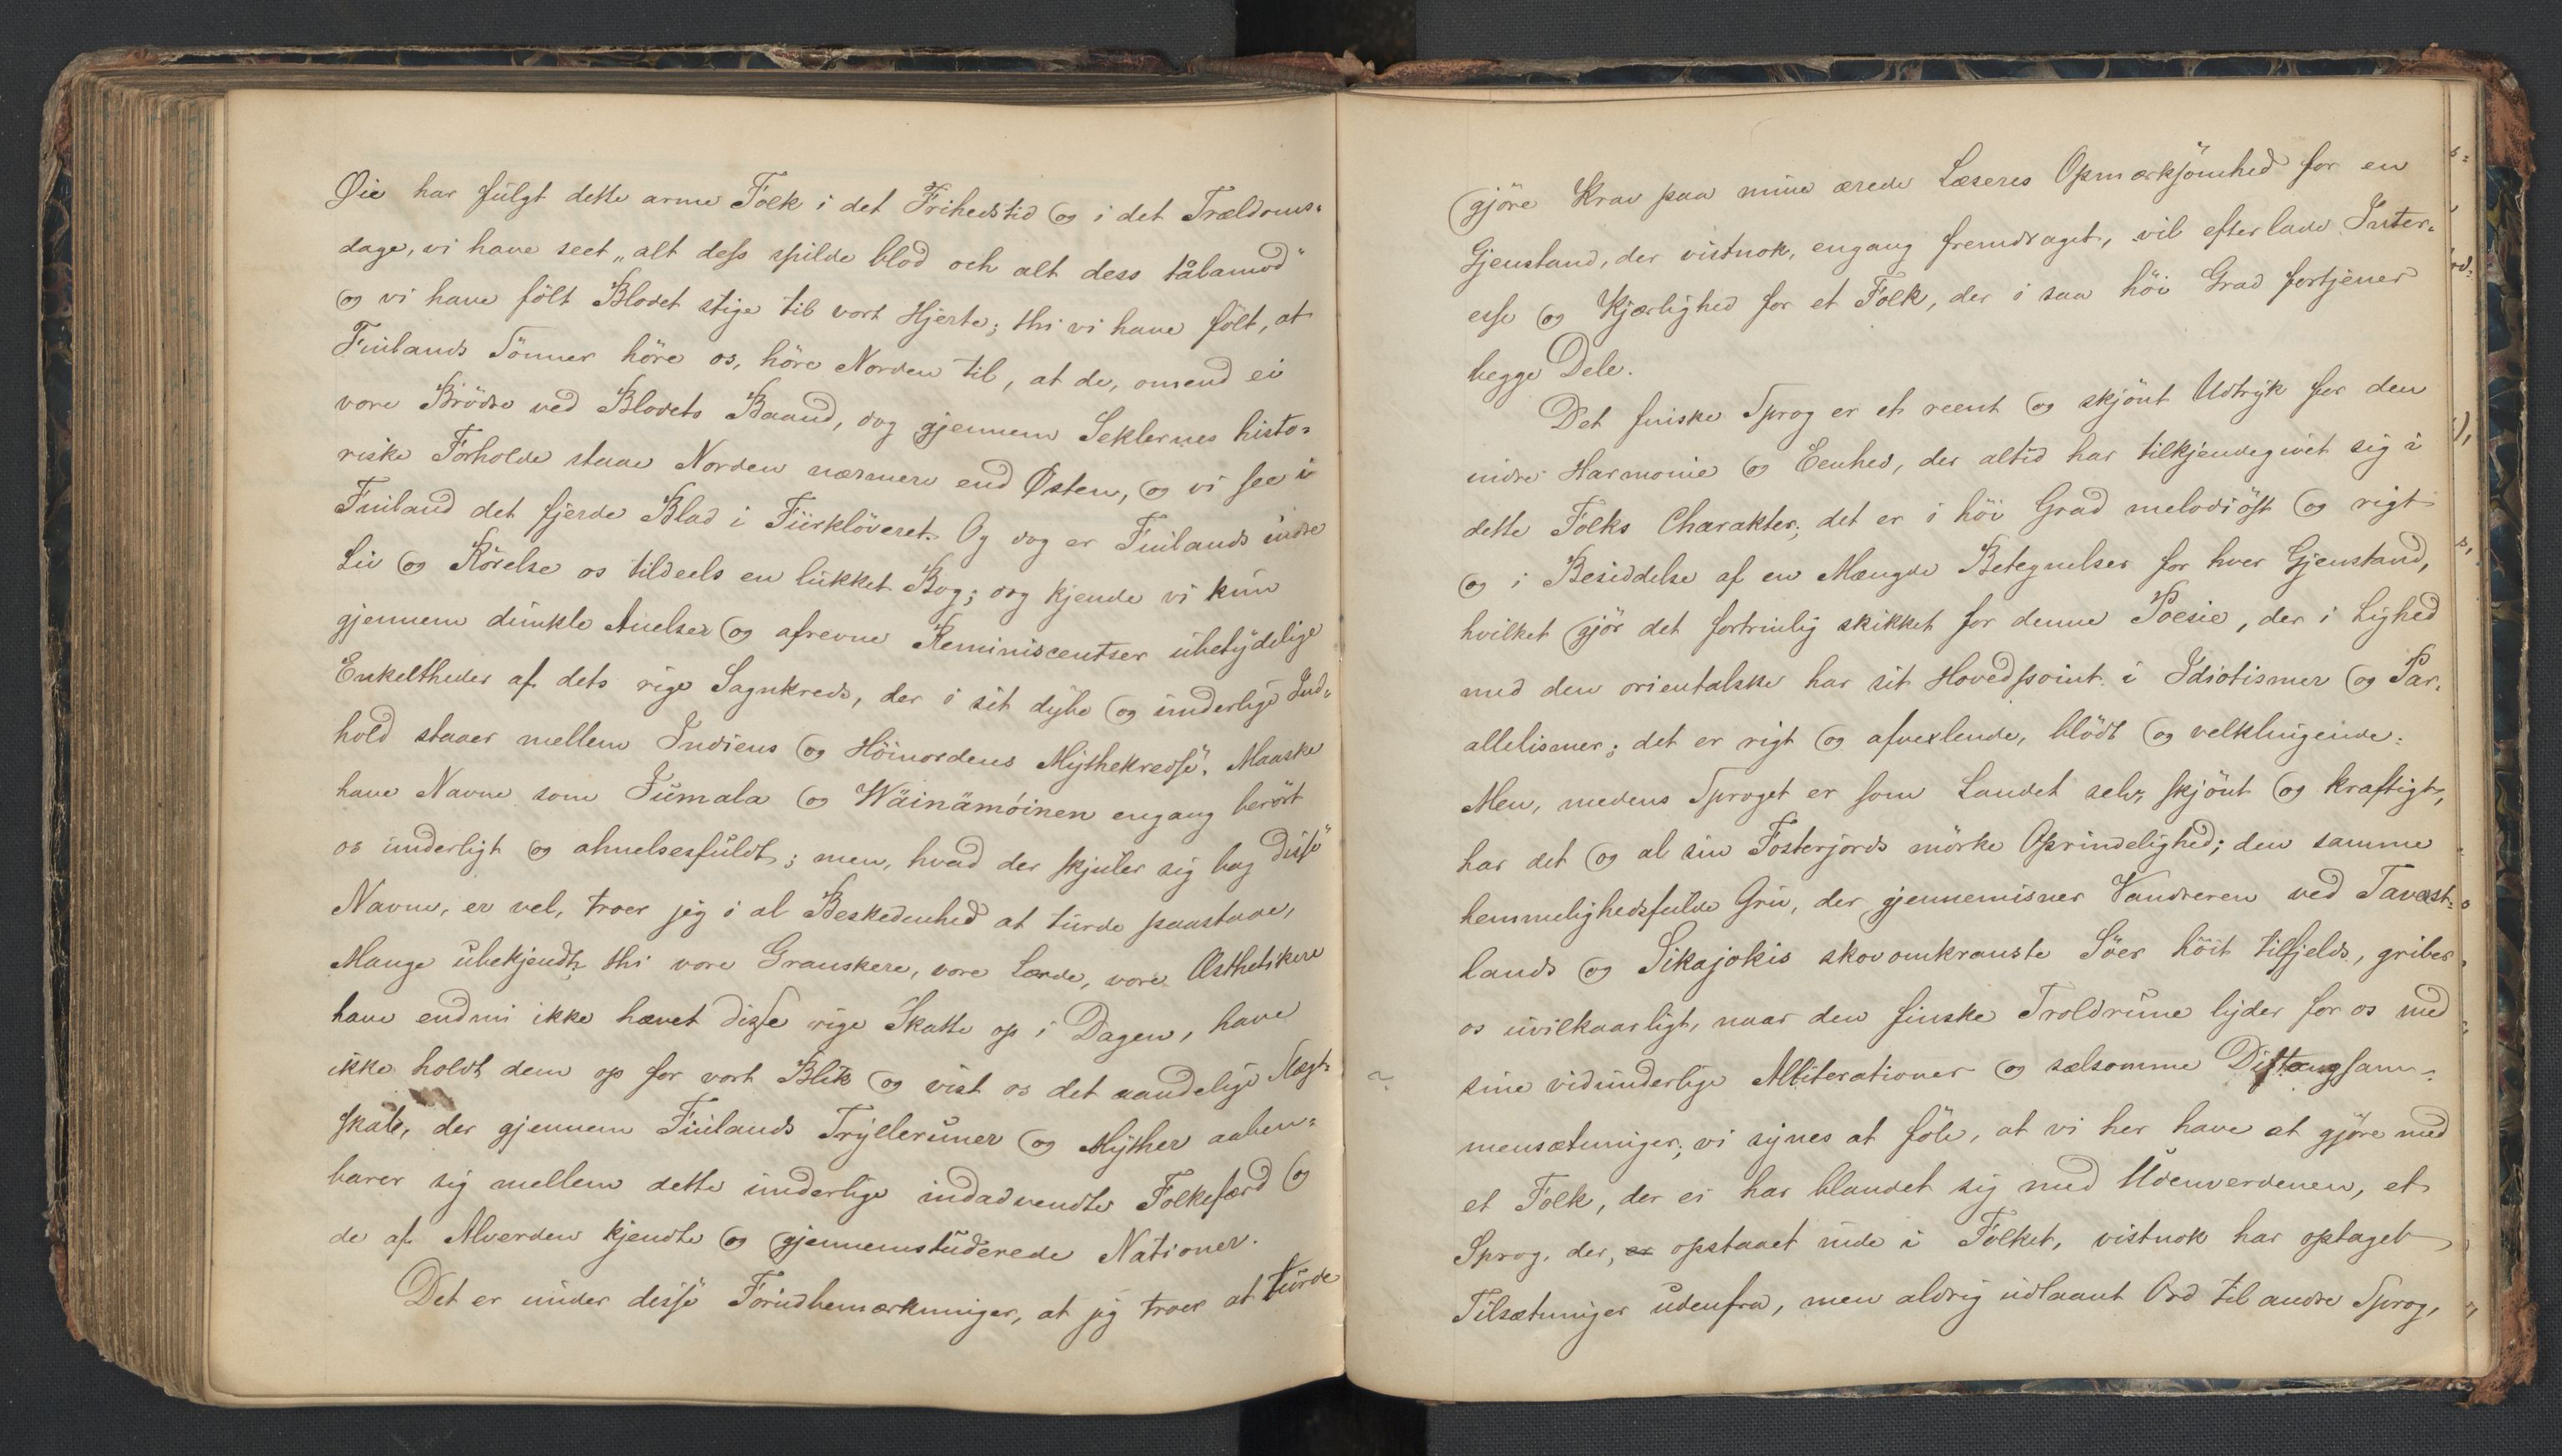 Øie har fulgt dette arme Folk i det Frihedstid og i det Trældoms-
dage, vi have seet „alt dess spilde blod och alt dess tålamod"
og vi have fölt Blodet stige til vort Hjerte; thi vi have fölt, at
Finlands Sönner höre os, höre Norden til, at de, omend ei
vore Brödre ved Blodets Baand, dog gjennem Seklernes histo-
riske Forholde staae Norden nærmere end Østen, og vi see i
Finland det fjerde Blad i Fiirklöveret. Og dog er Finlands indre
Liv og Rörelse os tildeels en lukket Bog; dog kjende vi kun
gjennem dunkle Anelser og afrevne Reminiscentser ubetydelige
Enkeltheder af dets rige Sagnkreds, der i sit dybe og underlige Ind-
hold staaer mellem Indiens og Höinordens Mythekredse. Maaske
have Navne som Jumala og Wäinämöinen engang berört
os underligt og ahnelsesfuldt; men, hvad der skjuler sig bag disse
Navne, er vel, troer jeg i al Beskedenhed at turde paastaae,
Mange ubekjendt, thi vore Granskere, vore Lærde, vore Æsthetikere
have endnu ikke hævet disse rige Skatte op i Dagen, have
ikke holdt dem op for vort Blik og vist os det aandelige Slægt-
skab, der gjennem Finlands Trylleruner og Myther aaben-
barer sig mellem dette underlige indadvendte Folkefærd og
de af Alverden kjendte og gjennemstuderede Nationer.
Det er under disse Forudbemærkninger, at jeg troer at turde
gjöre Krav paa mine ærede Læseres Opmærksomhed for en
Gjenstand, der vistnok, engang fremdraget, vil efterlade Inter-
esse og Kjærlighed for et Folk, der i saa höi Grad fortjener
begge Dele.
Det finske Sprog er et reent og skjönt Udtryk for den
indre Harmonie og Eenhed, der altid har tilkjendegivet sig i
dette Folks Charakter; det er i höi Grad melodiöst og rigt
og i Besiddelse af en Mængde Betegnelser for hver Gjenstand,
hvilket gjör det fortrinlig skikket for denne Poesie, der i Lighed
med den orientalske har sit Hovedpoint i Idiotismer og Par-
allelismer; det er rigt og afvexlende, blödt og velklingende.
Men, medens Sproget er som Landet selv, skjönt og kraftigt,
har det og al sin Fosterjords mörke Oprindelighed; den samme
hemmelighedsfulde Gru, der gjennemisner Vandreren ved Tavast-
lands og Sikajokis skovomkranste Söer höit tilfjelds, griber
os uvilkaarligt, naar den finske Troldrune lyder for os med
sine vidunderlige Alliterationer og sælsomme Diftongsam-
mensætninger; vi synes at föle, at vi her have at gjöre med
et Folk, der ei har blandet sig med Udenverdenen, et
Sprog, der, er opstaaet inde i Folket, vistnok har optaget
Tilsætninger udenfra, men aldrig udlaant Ord til andre Sprog,